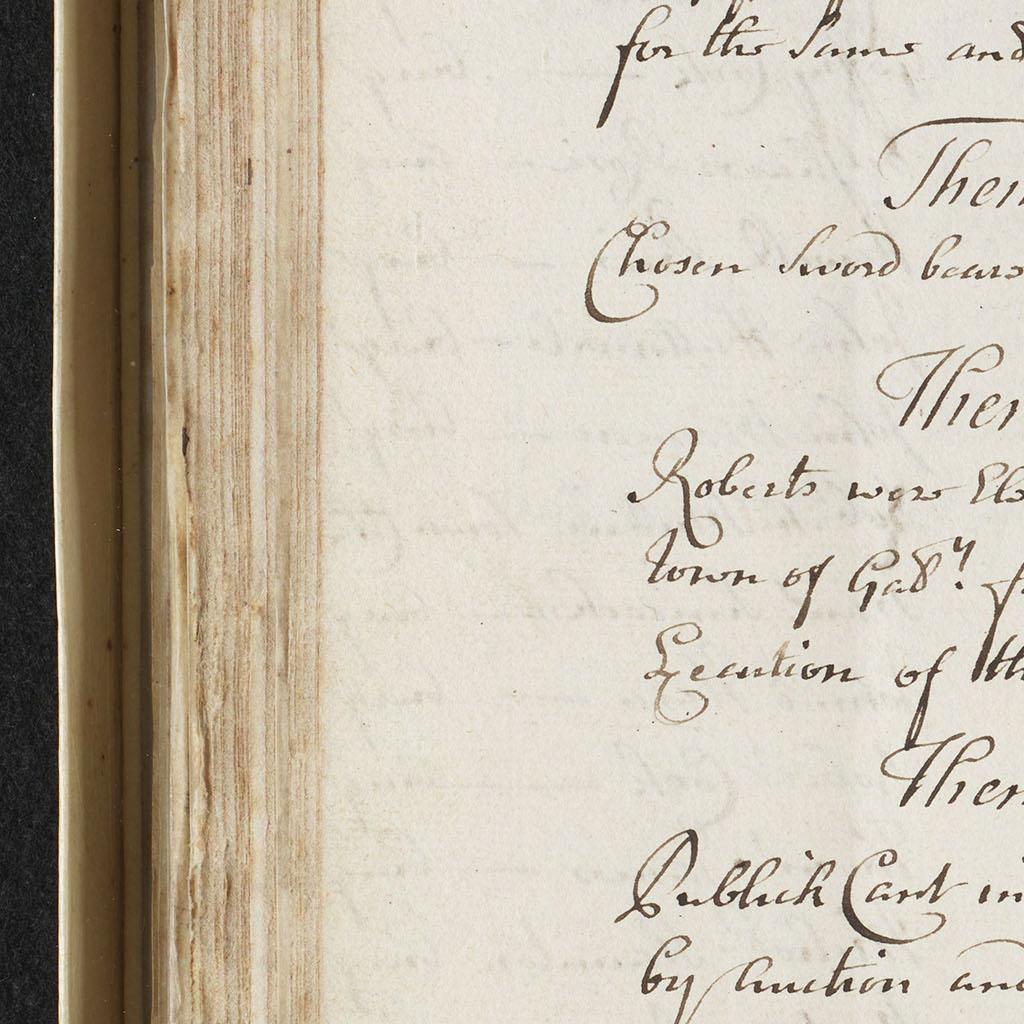 for the Same and
Then
Chosen Sword bears
Then
Roberts were Ele
Town of Gad.y f
Execution of th
Then
Publick Cart in
by Auction and